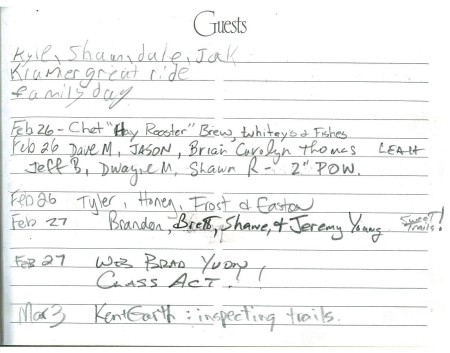 Guests
Kyle, Shawn, dale, Jak
Kramer great ride
family day
Feb 26 - Chet "Hay Rooster" Brew, Whitey's & Fishes
Feb 26 Dave M, JASON, Brian Carolyn Thomas LEAH
Jeff B, Dwayne M, Shawn R - 2" POW.
Feb 26 Tyler, Honey, Frost & Easton
Feb 27 Brandon, Brett, Shane, & Jeremy Young Sweet trails!
Feb 27 BRAD
CLASS ACT!!
Mar 3 Kent Garth: inspecting trails.